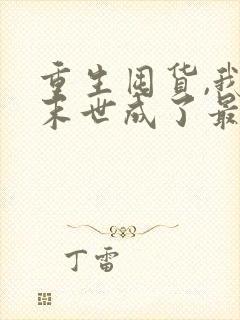 重生囤货,我
末世成了最
丁雷